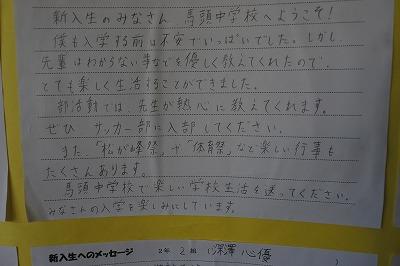 新入生のみなさん 馬頭中学校へようこそ!
僕も入学する前は不安でいっぱいでした。しかし
先輩はわからない事などを優しく教えてくれたので、
とても楽しく生活することができました。
部活動では、先生が熱心に教えてくれます。
ぜひ サッカー部に入部してください。
また「松が峰祭」や「体育祭」など楽しい行事も
たくさんあります。
馬頭中学校で楽しい学校生活を送ってください。
みなさんの入学を楽しみにしています。
新入生へのメッセージ 2年 2組 (深澤 心優 )